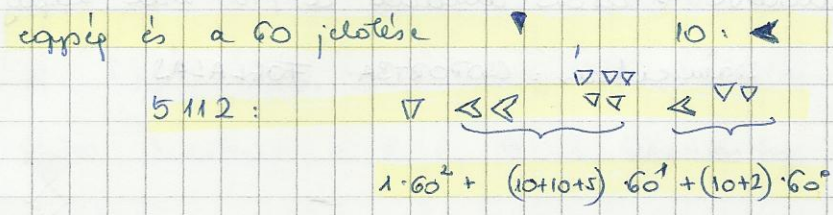 egység és a 60 jelölése ▼ 10: ◄
5112: ▽ << ▽▽▽▽▽ < ▽▽
1·60² + (10+10+5)·60¹ + (10+2)·60⁰